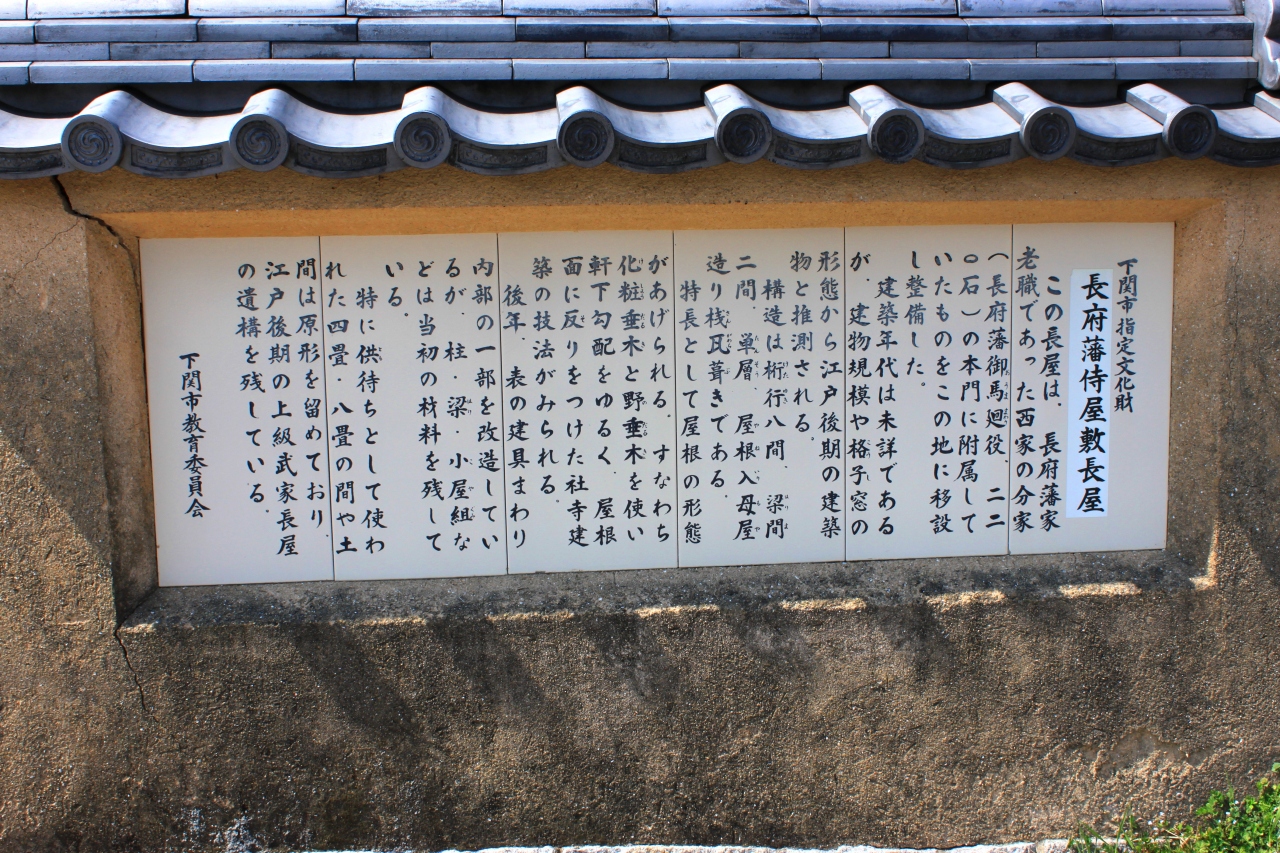 下関市指定文化財
長府藩侍屋敷長屋
この長屋は、長府藩家
老職であった西家の分家
（長府藩御馬廻役、二二
〇石）の本門に附属して
いたものをこの地に移設
し整備した。
建築年代は未詳である
が、建物規模や格子窓の
形態から江戸後期の建築
物と推測される。
構造は桁行八間、梁間
二間、単層、屋根入母屋
造り桟瓦葺きである。
特長として屋根の形態
があげられる。すなわち
化粧垂木と野垂木を使い
軒下勾配をゆるく、屋根
面に反りをつけた社寺建
築の技法がみられる。
後年、表の建具まわり
内部の一部を改造してい
るが、柱・梁・小屋組な
どは当初の材料を残して
いる。
特に供待ちとして使わ
れた四畳・八畳の間や土
間は原形を留めており、
江戸後期の上級武家長屋
の遺構を残している。
下関市教育委員会